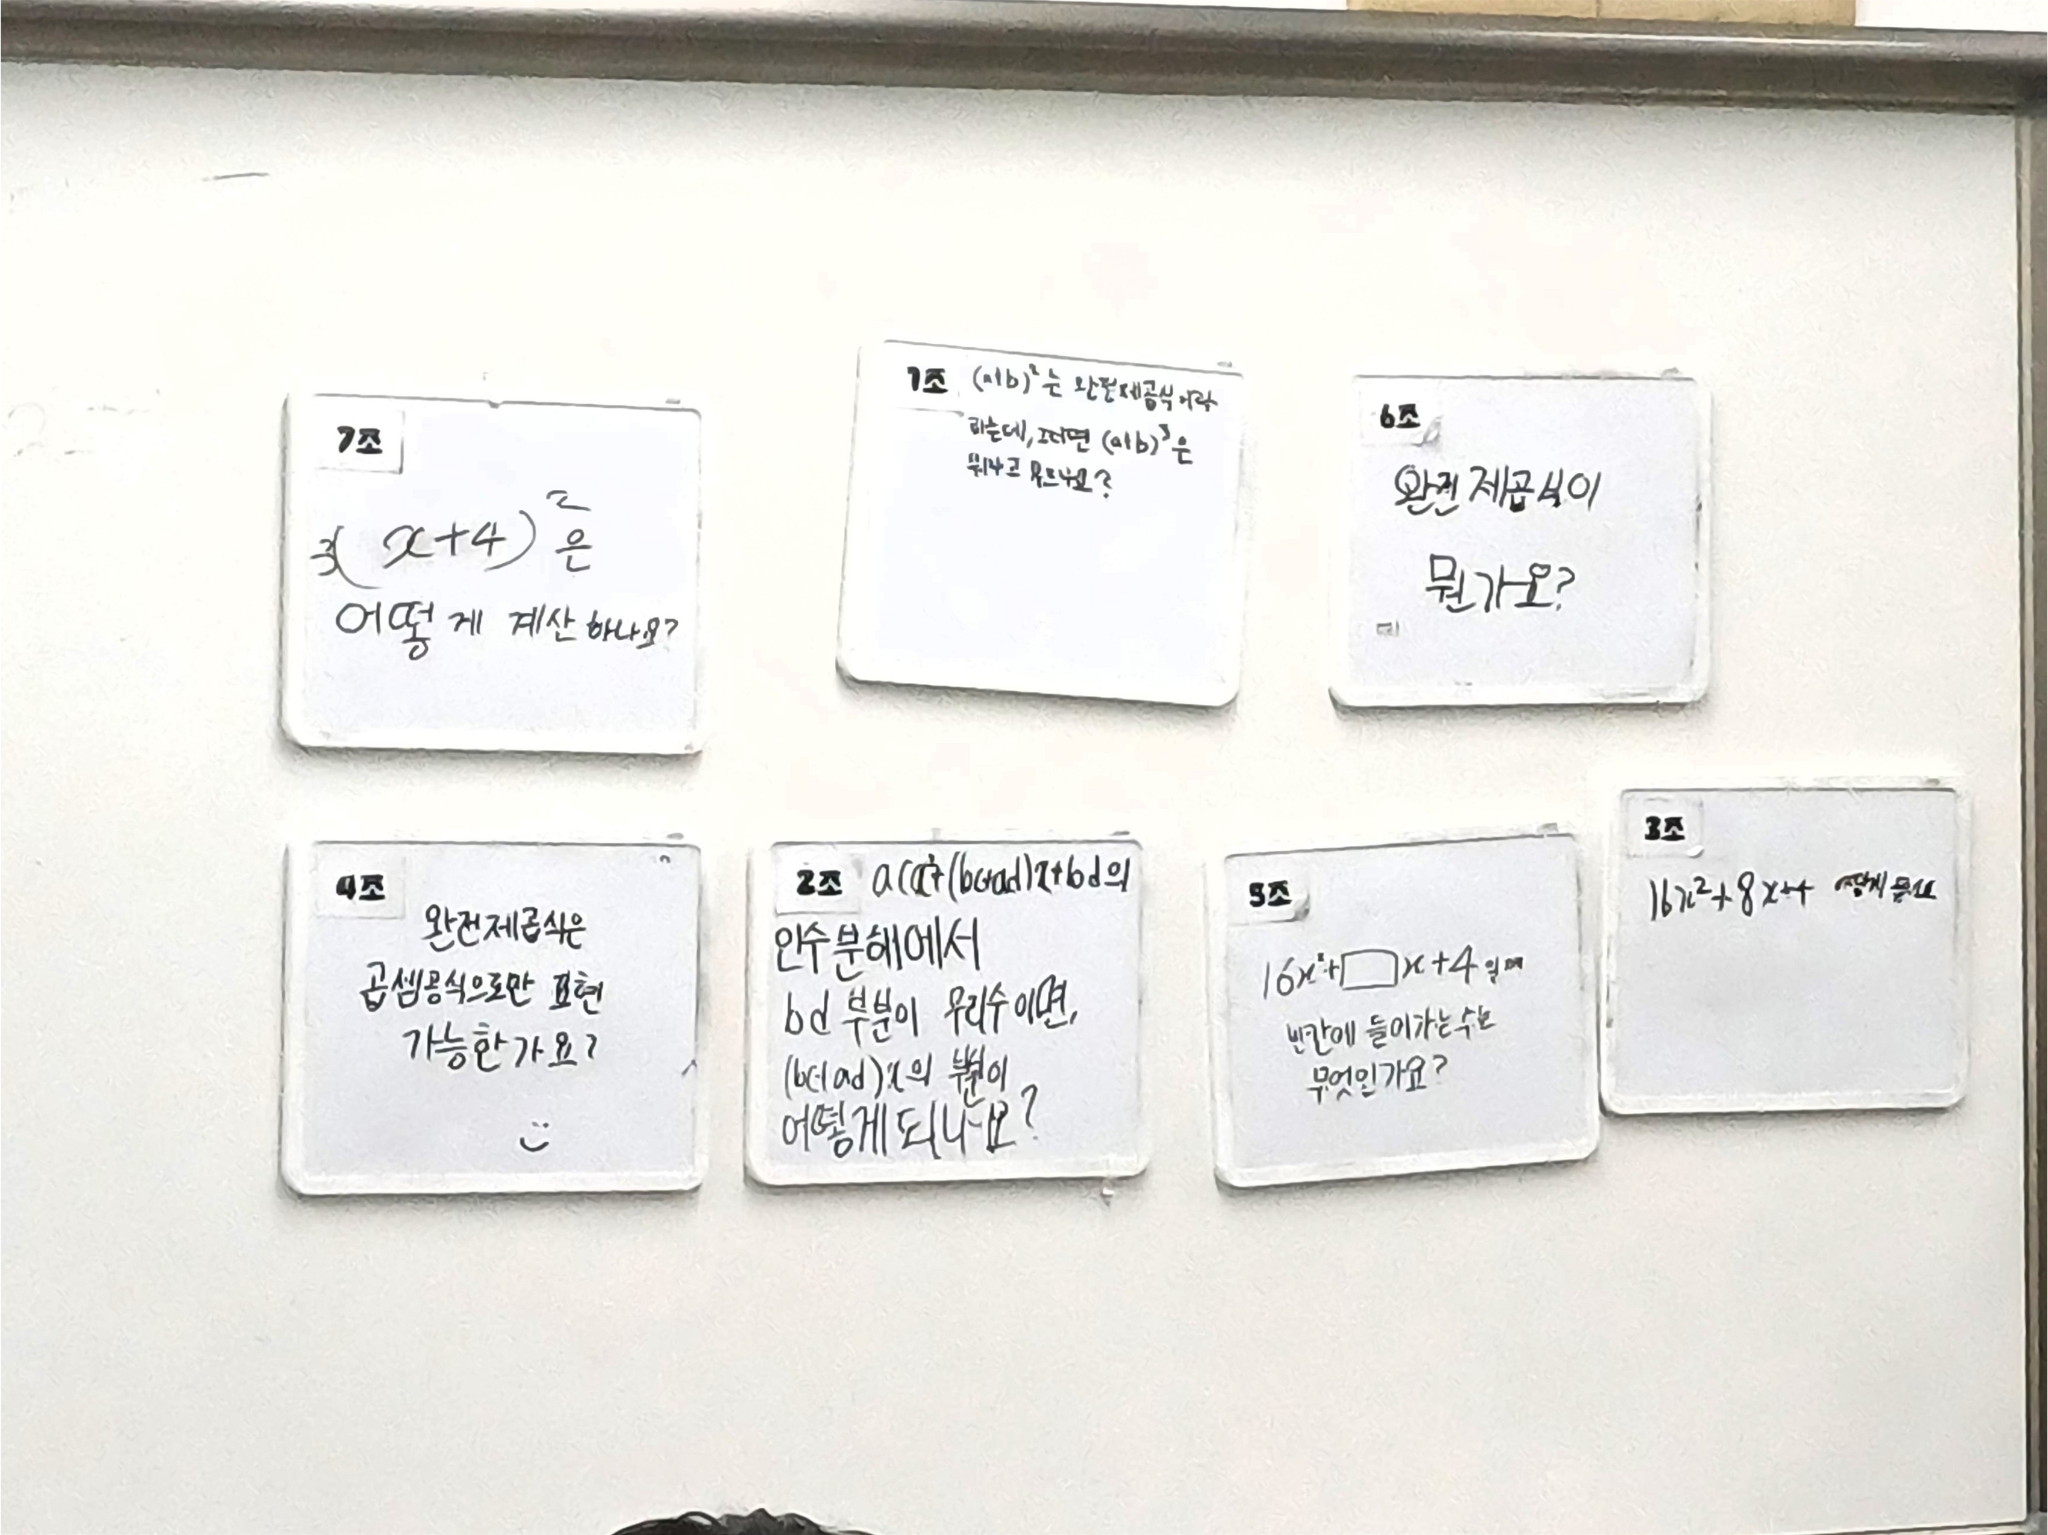 7조
3(x+4)²은
어떻게 계산하나요?
1조 (a+b)²는 완전제곱식이라
하는데, 그러면 (a+b)³은
뭐라고 부르나요?
6조
완전제곱식이
뭔가요?
4조
완전제곱식은
곱셈공식으로만 표현
가능한가요?
2조 acx²+(bc+ad)x+bd의
인수분해에서
bd 부분이 무리수이면,
(bc+ad)x의 부분이
어떻게 되나요?
5조
16x²+□x+4일 때
빈칸에 들어가는 수는
무엇인가요?
3조
16x²+8x+4 어떻게